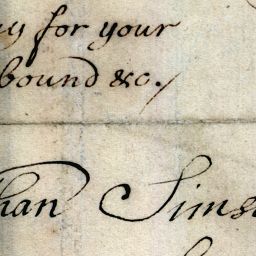 ay for your
bound &c.
han Sims